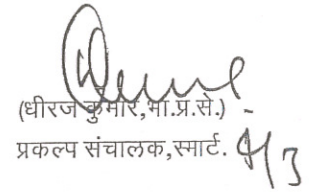 (धीरज कुमार,भा.प्र.से.)
प्रकल्प संचालक,स्मार्ट.